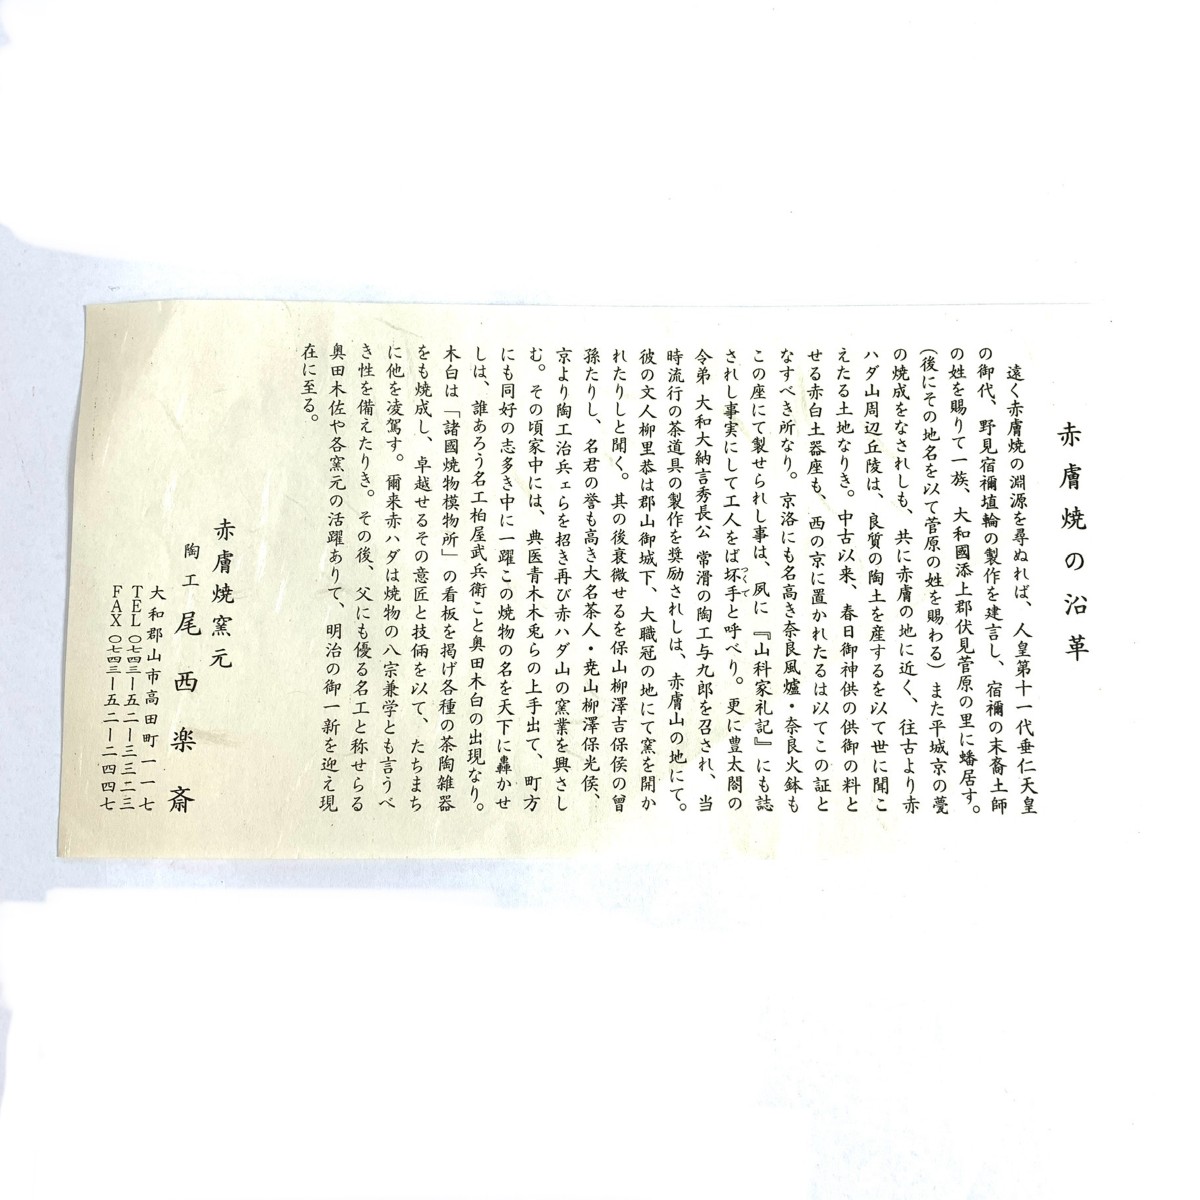 赤膚焼の沿革
遠く赤膚焼の淵源を尋ぬれば、人皇第十一代垂仁天皇
の御代、野見宿禰埴輪の製作を建言し、宿禰の末裔土師
の姓を賜りて一族、大和國添上郡伏見菅原の里に蟠居す。
（後にその地名を以て菅原の姓を賜わる）また平城京の甍
の焼成をなされしも、共に赤膚の地に近く、往古より赤
ハダ山周辺丘陵は、良質の陶土を産するを以て世に聞こ
えたる土地なりき。中古以来、春日御神供の供御の料と
せる赤白土器座も、西の京に置かれたるは以てこの証と
なすべき所なり。京洛にも名高き奈良風爐・奈良火鉢も
この座にて製せられし事は、夙に『山科家礼記』にも誌
されし事実にして工人をば坏手と呼べり。更に豊太閤の
つくて
令弟 大和大納言秀長公 常滑の陶工与九郎を召され、当
時流行の茶道具の製作を奨励されしは、赤膚山の地にて。
彼の文人柳里恭は郡山御城下、大職冠の地にて窯を開か
れたりしと聞く。其の後衰微せるを保山柳澤吉保侯の曾
孫たりし、名君の誉も高き大名茶人・尭山柳澤保光侯、
京より陶工治兵ェらを招き再び赤ハダ山の窯業を興さし
む。その頃家中には、典医青木木兎らの上手出て、町方
にも同好の志多き中に一躍この焼物の名を天下に轟かせ
しは、誰あろう名工柏屋武兵衛こと奥田木白の出現なり。
木白は「諸國焼物模物所」の看板を掲げ各種の茶陶雑器
をも焼成し、卓越せるその意匠と技倆を以て、たちまち
に他を凌駕す。爾来赤ハダは焼物の八宗兼学とも言うべ
き性を備えたりき。その後、父にも優る名工と称せらる
奥田木佐や各窯元の活躍ありて、明治の御一新を迎え現
在に至る。
赤膚焼窯元
陶工 尾西楽斎
大和郡山市高田町一一七
TEL 〇七四三ー五二ー三三二三
FAX 〇七四三ー五二ー二四四七